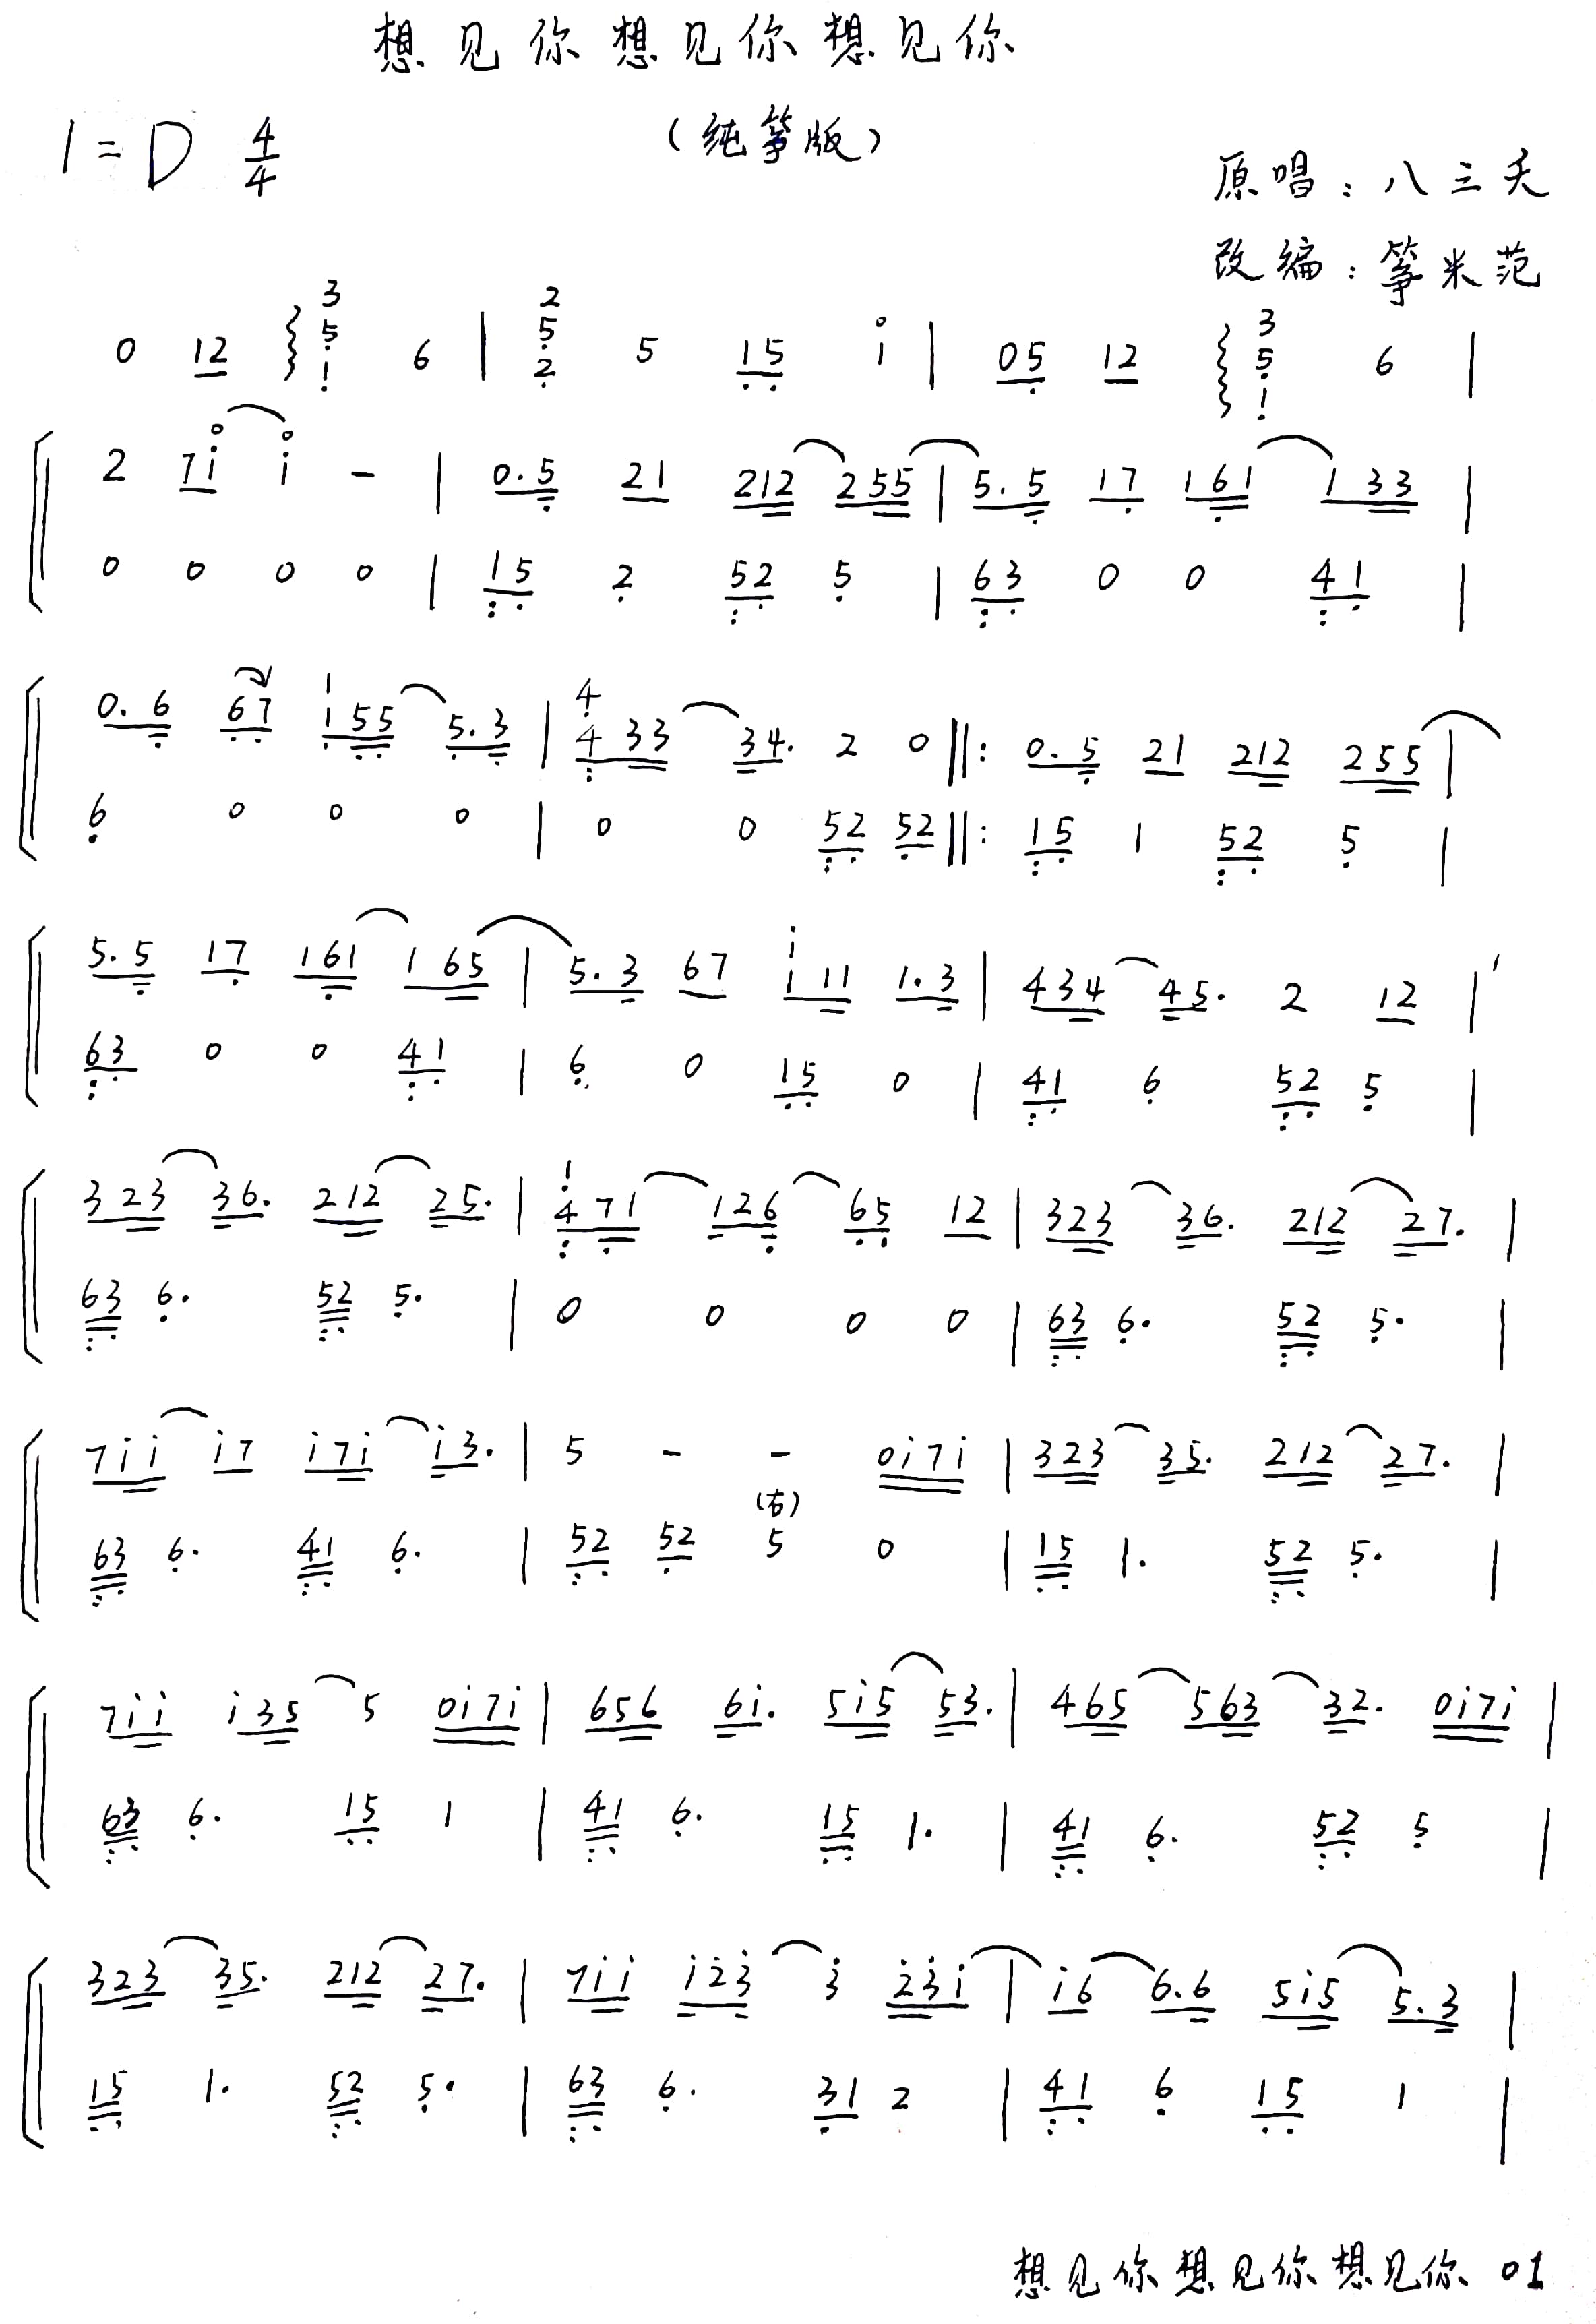 想见你想见你想见你
(纯筝版)
1=D 4/4
原唱：八三夭
改编：筝米范
0 12 3 5̣ 1̣ 6 | 2 5̣ 2̣ 5 1̣5̣ i | 05̣ 12 3 5̣ 1̣ 6 |
2 7i i - | 0.5̣ 21 212 255 | 5.5̣ 17̣ 16̣1 133 |
0 0 0 0 | 15 2 52 5 | 63 0 0 41 |
0.6̣ 6̣7̣ 1 155 5.3 | 4 433 34. 2 0 ‖: 0.5̣ 21 212 255 |
6 0 0 0 | 0 0 52 52 ‖: 15 1 52 5 |
5.5̣ 17̣ 16̣1 165 | 5.3 67 i i11 1.3 | 434 45. 2 12 |
63 0 0 41 | 6 0 15 0 | 41 6 52 5 |
323 36. 212 25. | 1 471 126̣ 6̣5̣ 12 | 323 36. 212 27. |
63 6. 52 5. | 0 0 0 0 | 63 6. 52 5. |
7ii i7 i7i i3. | 5 - - 0i7i | 323 35. 212 27. |
63 6. 41 6. | 52 52 (右) 5 0 | 15 1. 52 5. |
7ii i35 5 0i7i | 656 6i. 5i5 53. | 465 563 32. 0i7i |
63 6. 15 1 | 41 6. 15 1. | 41 6. 52 5 |
323 35. 212 27. | 7ii i2̇3̇ 3̇ 2̇3̇i | i6 6.6 5i5 5.3 |
15 1. 52 5. | 63 6. 31 2 | 41 6 15 1 |
想见你想见你想见你 01